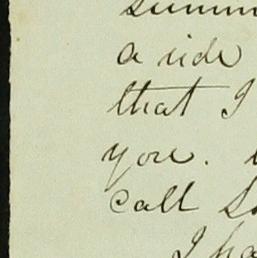 a ride
that I
you.
call
I ha